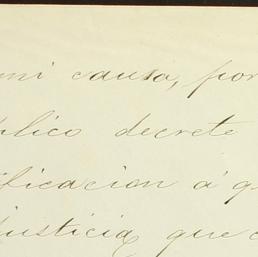 mi causa, por
blico decrete
ificacion á q
justicia, que c